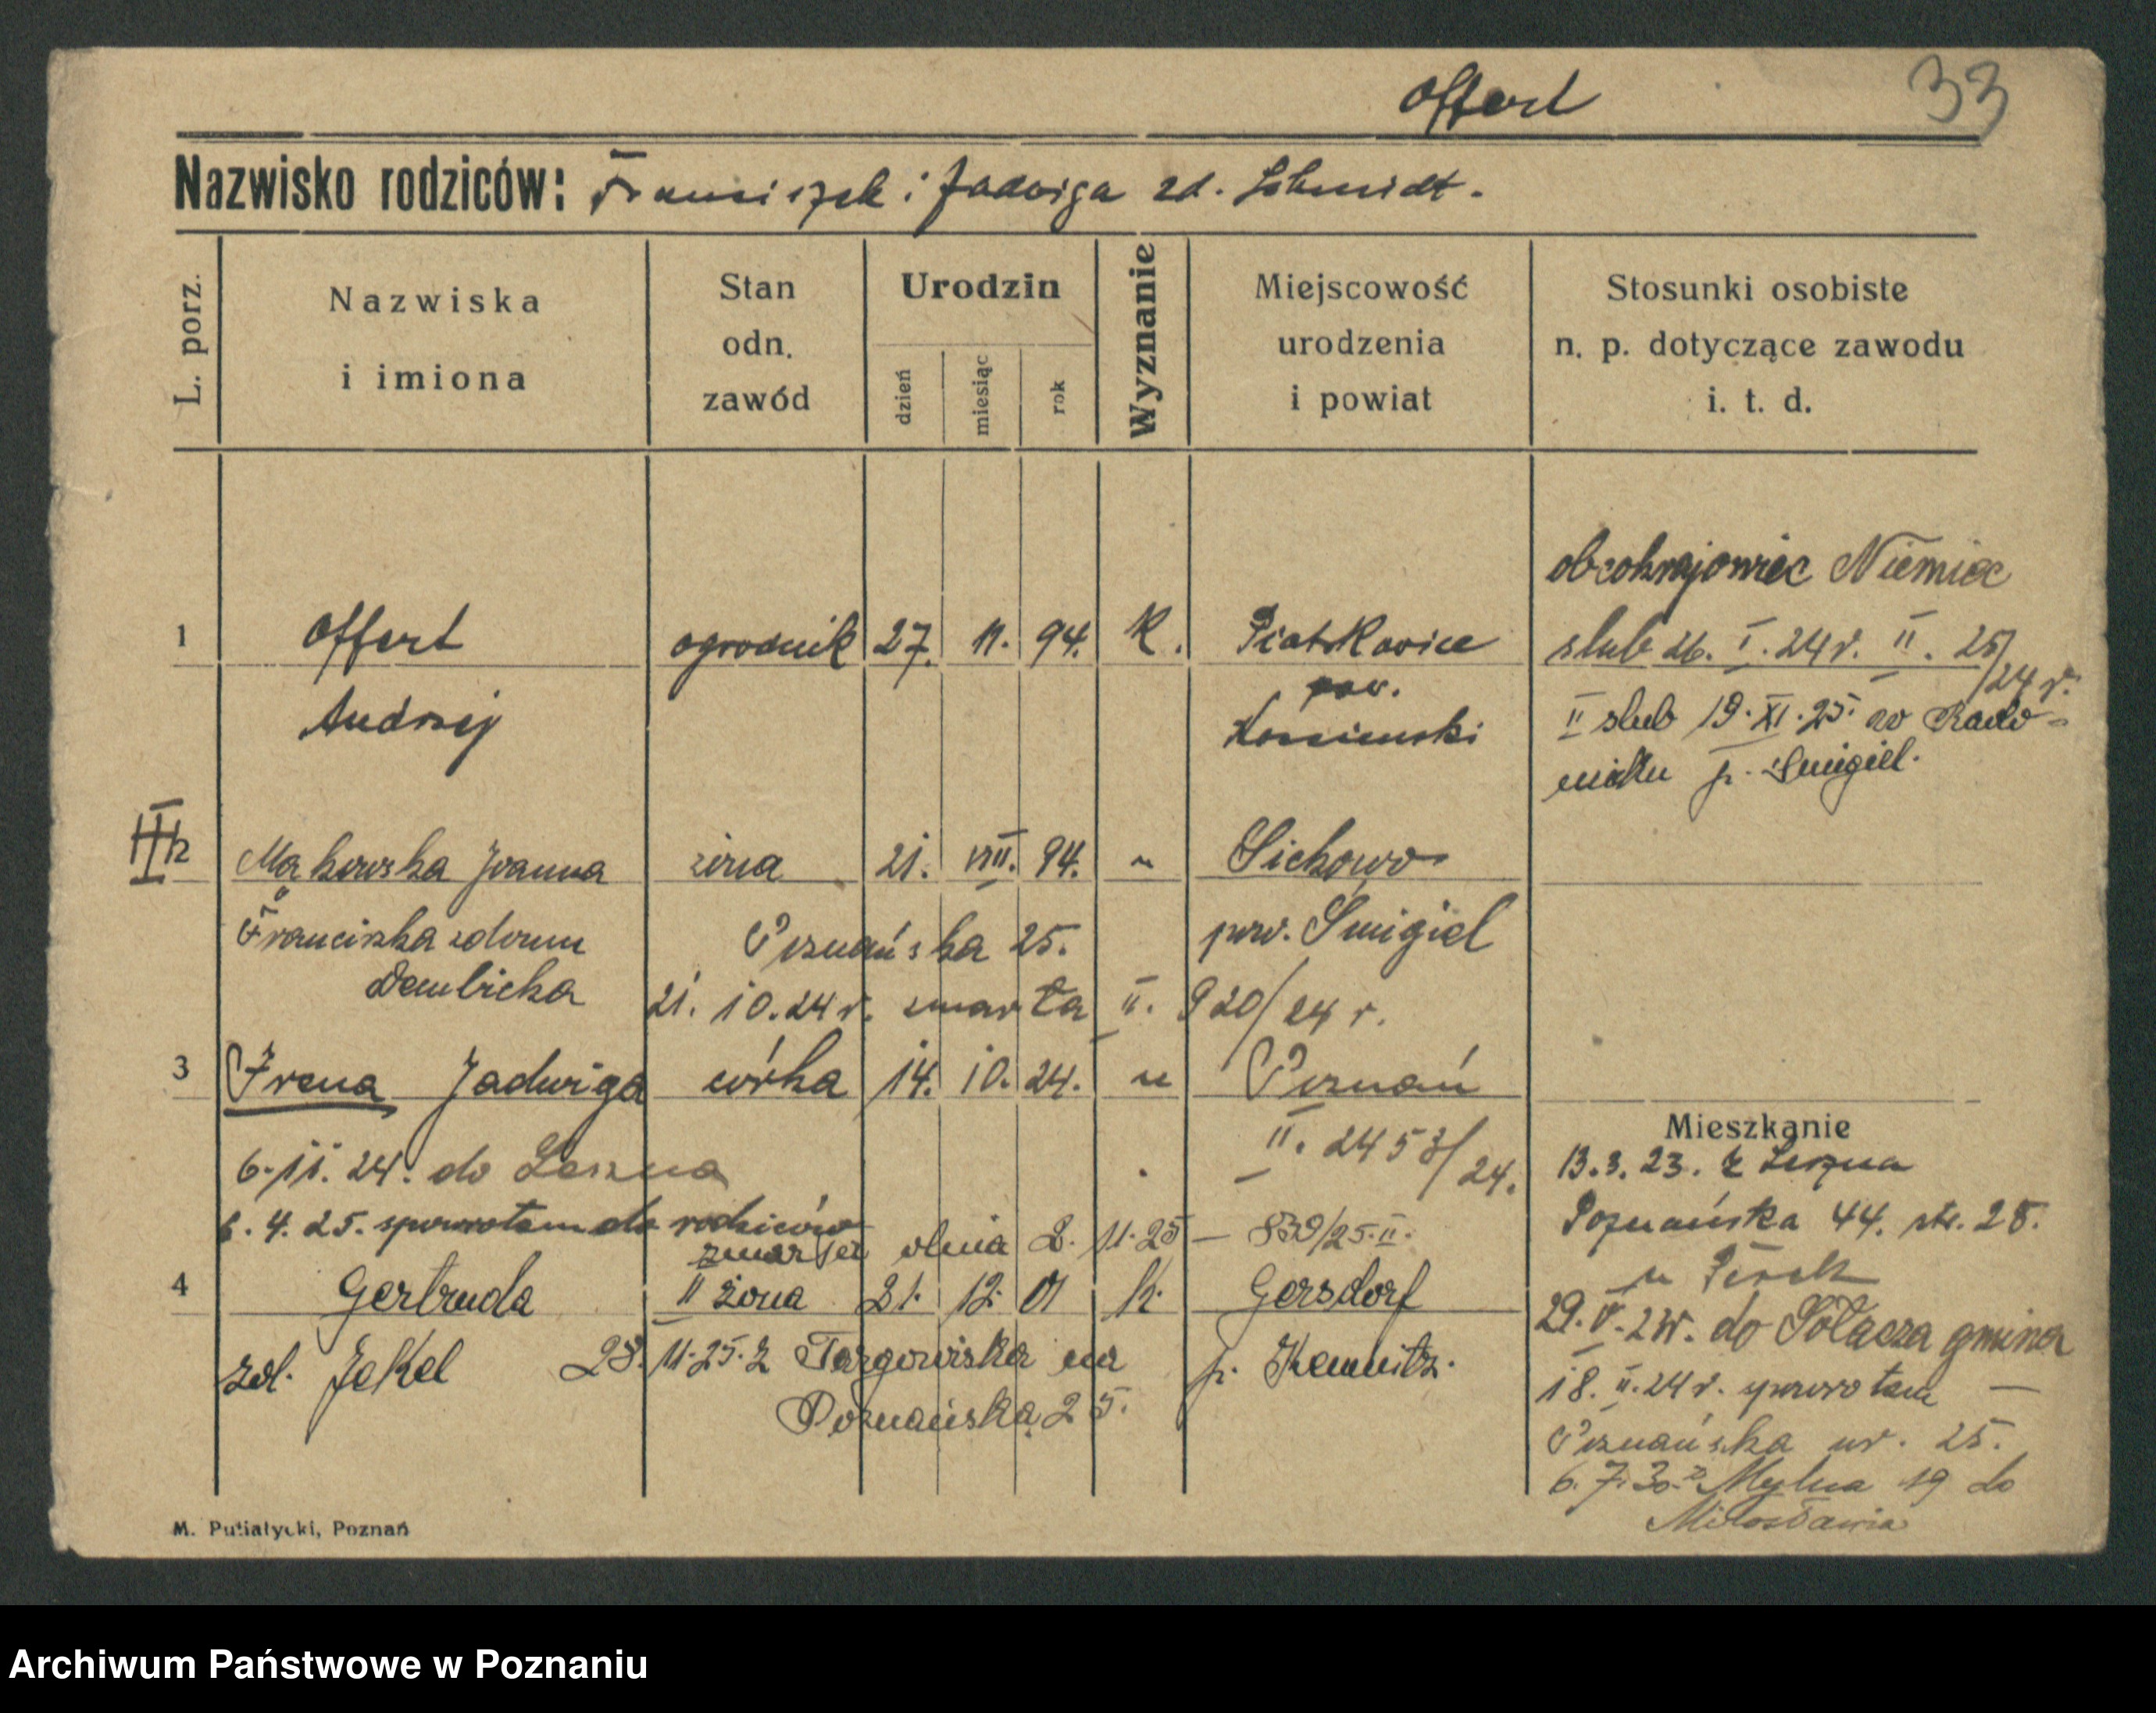 Offert 33
Nazwisko rodziców: Franciszek i Jadwiga zd. Schmidt.
L. porz.
Nazwiska
i imiona
Stan
odn.
zawód
Urodzin
dzień
miesiąc
rok
Wyznanie
Miejscowość
urodzenia
i powiat
Stosunki osobiste
n. p. dotyczące zawodu
i. t. d.
obcokrajowiec Niemiec
1 Offert ogrodnik 27. 11. 94. K. Piatkowice slub 26. I. 24 r. II. 25/24 r.
Andrzej pow. Koscienski
II slub 19. XI. 25. w Radomicku p. Smigiel.
III
2 Makowska Joanna żona 21. VIII. 94. " Sichowo
Franciszka zdomu Poznańska 25. pow. Smigiel
Dembicka 21. 10. 24 r. zmarła II. 920/24 r.
3 Irena Jadwiga córka 14. 10. 24. " Poznań
II. 2453/24.
6. 11. 24. do Leszna
6. 4. 25. spowrotem do rodziców
zmarła dnia 2. 11. 25 – 839/25. II.
4 Gertruda II żona 21. 12. 01 K. Gersdorf
zd. Jekel 28. 11. 25. z Targowiska na p. Kemnitz.
Poznańska 25.
Mieszkanie
13. 3. 23. z Leszna
Poznańska 44. ptr. 28.
u
29. V. do Sołacza gmina
18. II. 24 r. spowrotem –
Poznańska nr. 25.
6. 7. 30. z Mylna 19 do
Miłosławia
M. Putiatycki, Poznań
Archiwum Państwowe w Poznaniu